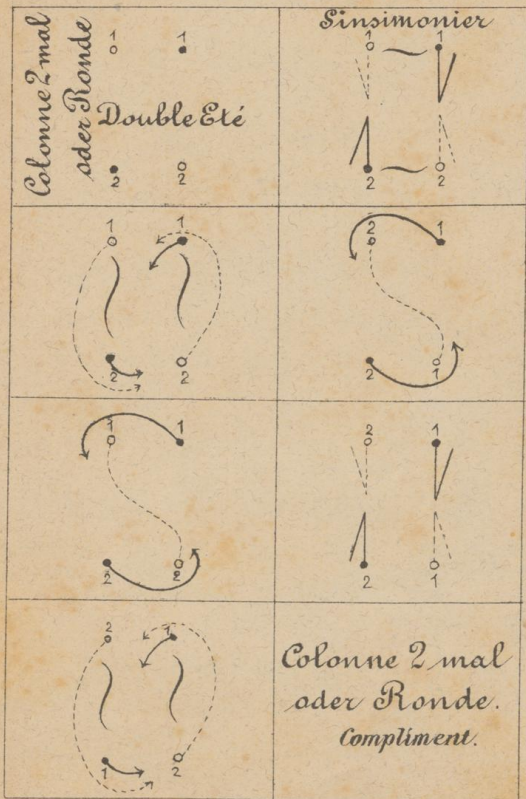 Colonne 2 mal
oder Ronde
1 1
Double Eté
2 2
Sinsimonier
1 1
2 2
1 1
2 2
2 1
2 1
1 1
2 2
2 1
2 1
2 1
1 2
Colonne 2 mal
oder Ronde.
Compliment.